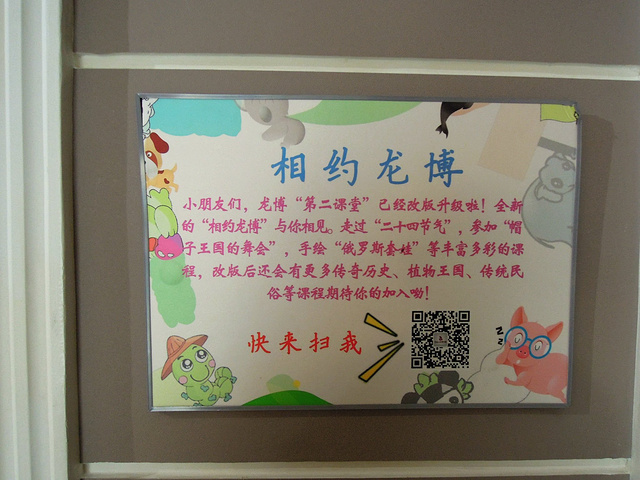 相约龙博
小朋友们，龙博“第二课堂”已经改版升级啦！全新
的“相约龙博”与你相见。走过“二十四节气”，参加“帽
子王国的舞会”，手绘“俄罗斯套娃”等丰富多彩的课
程，改版后还会有更多传奇历史、植物王国、传统民
俗等课程期待你的加入呦！
快来扫我
z
z